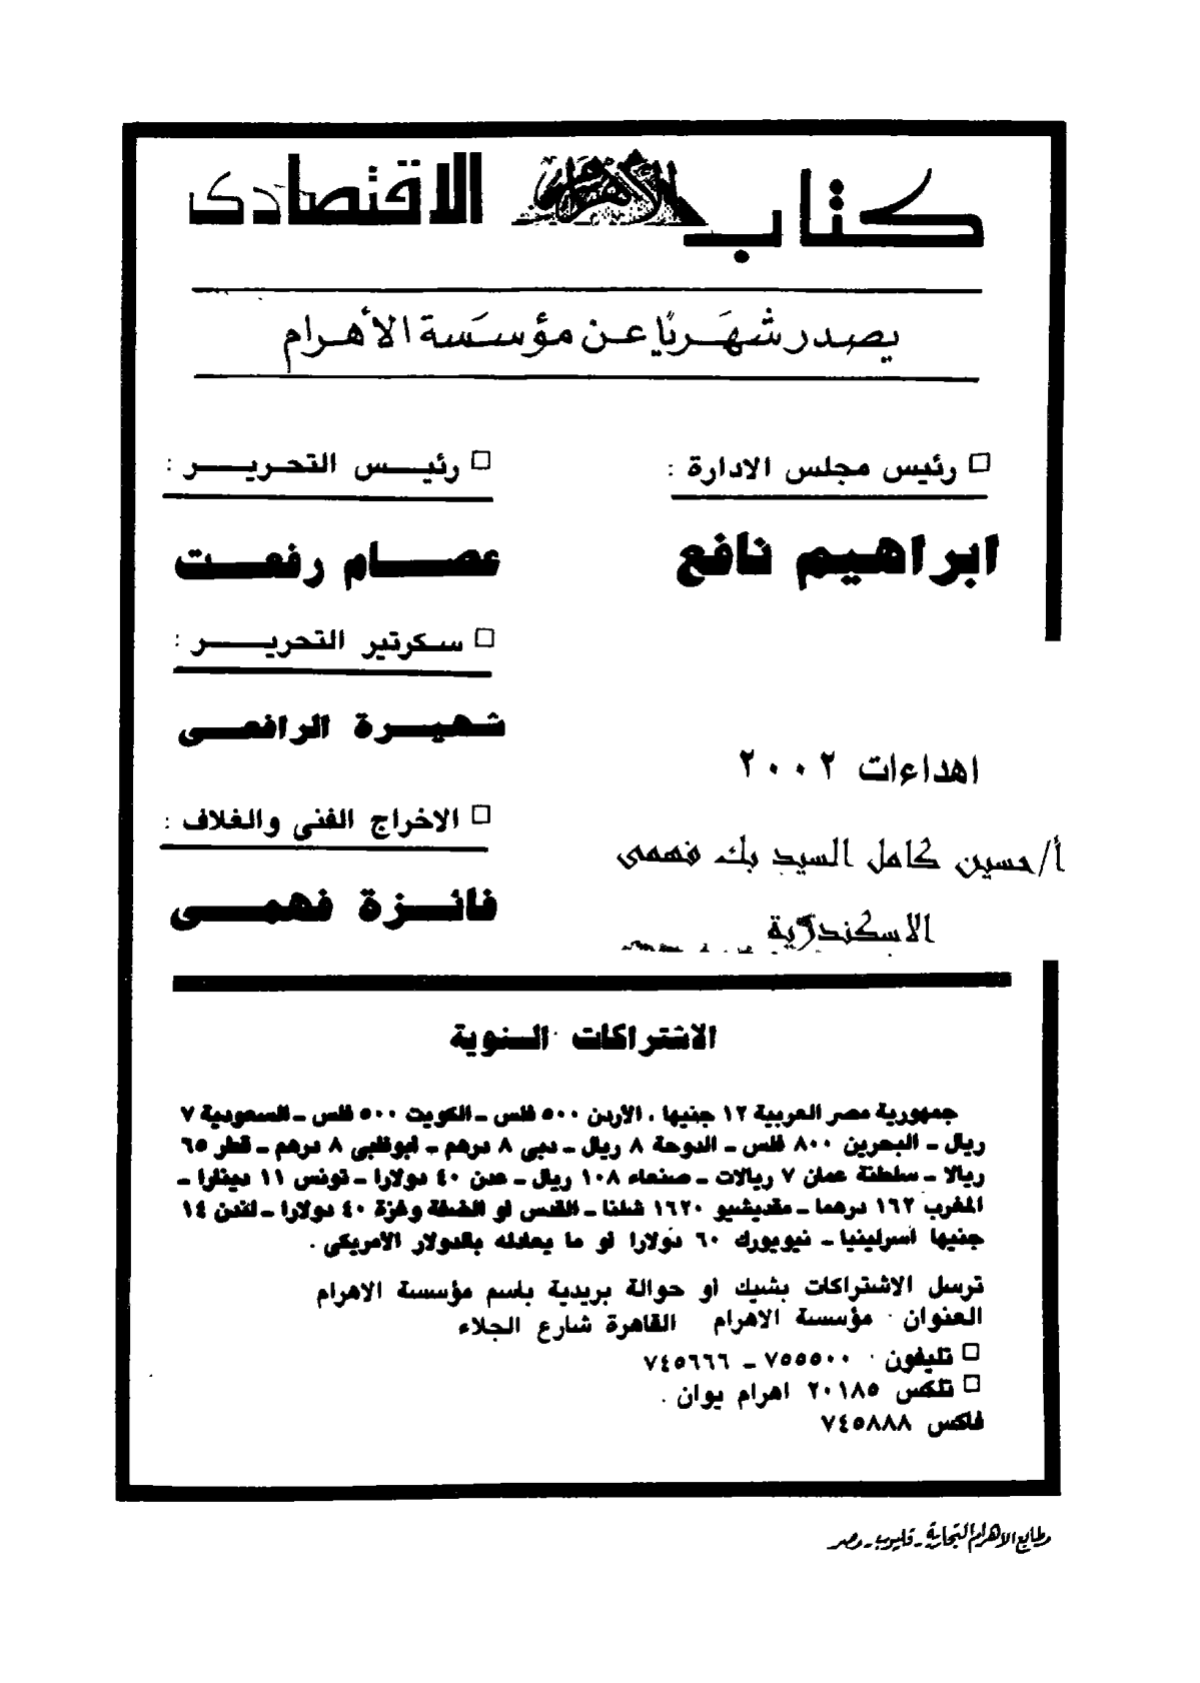 كتاب الأهرام الاقتصادى
يصدر شهريًا عن مؤسسة الأهرام
□ رئيس مجلس الادارة :
ابراهيم نافع
□ رئيس التحرير :
عصام رفعت
□ سكرتير التحرير :
شهيرة الرافعى
□ الاخراج الفنى والغلاف :
فائزة فهمى
اهداءات ٢٠٠٢
أ/حسين كامل السيد بك فهمى
الاسكندرية
الاشتراكات السنوية
جمهورية مصر العربية ١٢ جنيها ، الاردن ٥٠٠ فلس ـ الكويت ٥٠٠ فلس ـ السعودية ٧
ريال ـ البحرين ٨٠٠ فلس ـ الدوحة ٨ ريال ـ دبى ٨ درهم ـ ابوظبى ٨ درهم ـ قطر ٦٥
ريالا ـ سلطنة عمان ٧ ريالات ـ صنعاء ١٠٨ ريال ـ عدن ٤٠ دولارا ـ تونس ١١ دينارا ـ
المغرب ١٦٢ درهما ـ مقديشيو ١٦٢٠ شلنا ـ القدس او الضفة وغزة ٤٠ دولارا ـ لندن ١٤
جنيها استرلينيا ـ نيويورك ٦٠ دولارا او ما يعادله بالدولار الامريكى .
ترسل الاشتراكات بشيك او حوالة بريدية باسم مؤسسة الاهرام
العنوان مؤسسة الاهرام القاهرة شارع الجلاء
□ تليفون ٧٥٥٥٠٠ ـ ٧٤٥٦٦٦
□ تلكس ٢٠١٨٥ اهرام يوان .
فاكس ٧٤٥٨٨٨
مطابع الاهرام التجارية ـ قليوب ـ مصر